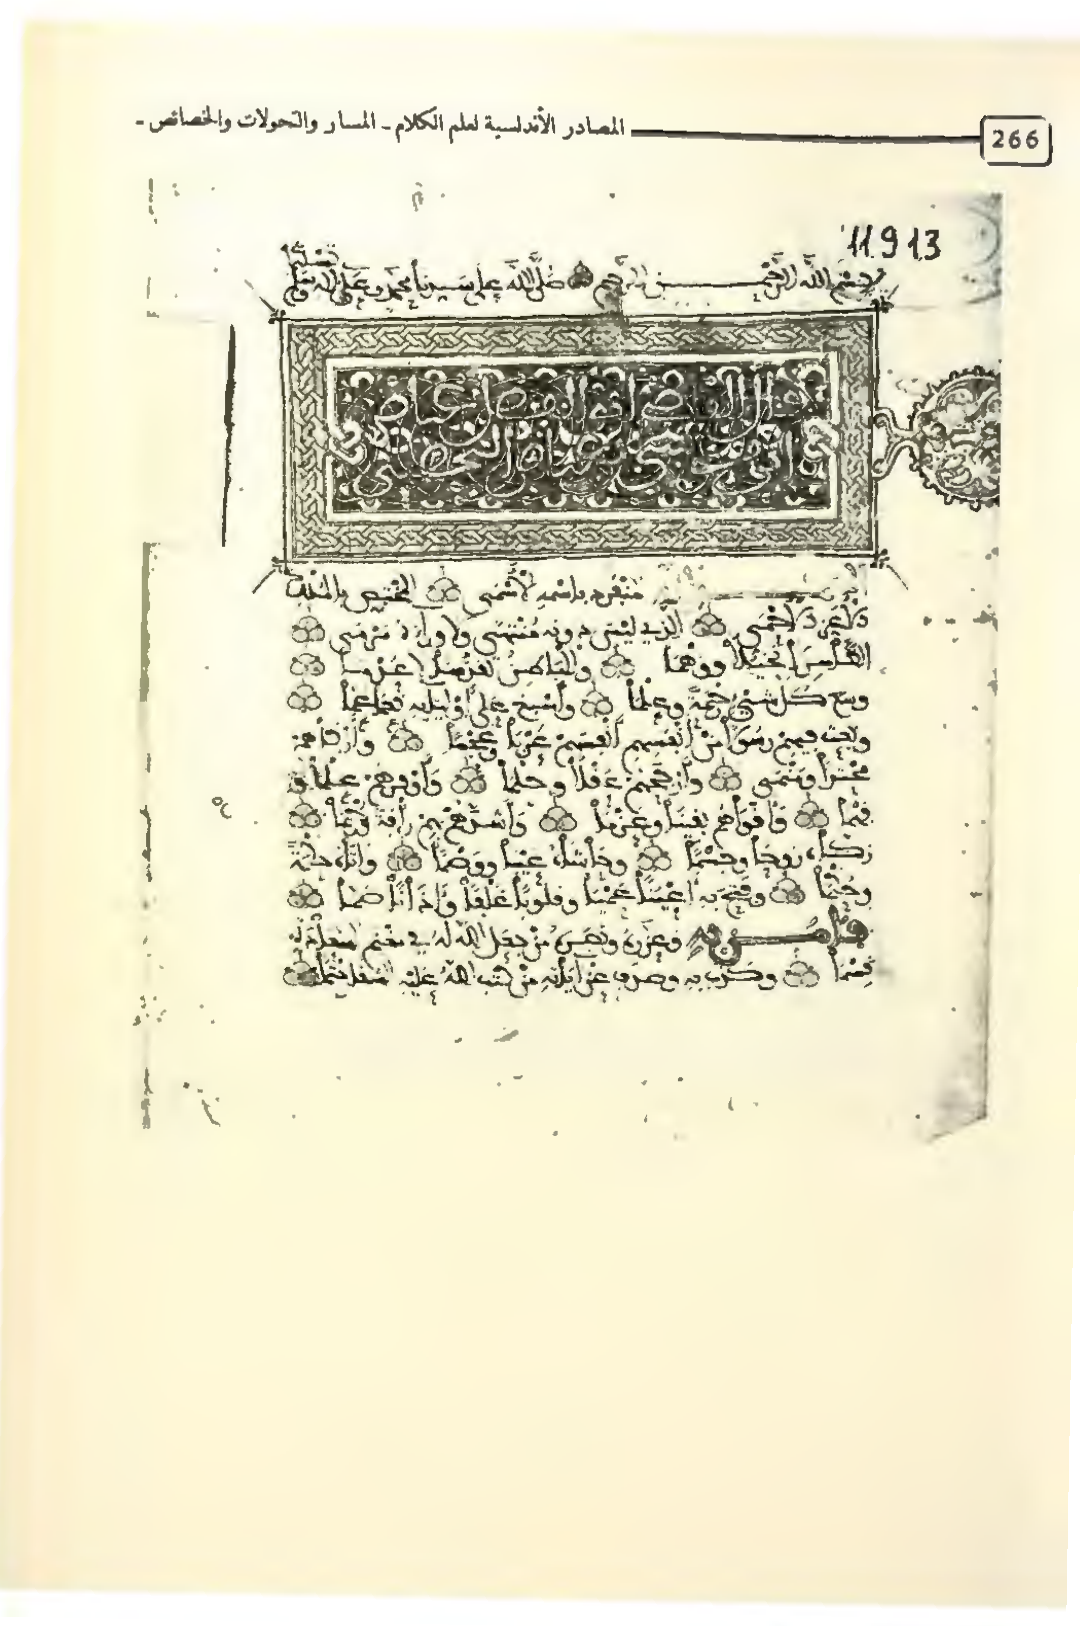 266
المصادر الأندلسية لعلم الكلام - المسار والتحولات والخصائص -
11913
بسم الله الرحمن الرحيم صلى الله على سيدنا محمد وعلى اله وسلم
تسليما
قال القاضي ابو الفضل عياض
ابن موسى بن عياض اليحصبي
المنفرد باسمه الأسمى المختص بالملك
الأعز الأحمى الذي ليس دونه منتهى ولا وراءه مرمى
الظاهر لا تخيلا ووهما والباطن تقدسا لا عدما
وسع كل شيء رحمة وعلما وأسبغ على أوليائه نعما عما
وبعث فيهم رسولا من أنفسهم أنفسهم عربا وعجما وأزكاهم
محتدا ومنمى وأرجحهم عقلا وحلما وأوفرهم علما و
فهما وأقواهم يقينا وعزما وأشدهم بهم رأفة ورحما
زكاه روحا وجسما وحاشاه عيبا ووصما وآتاه حكمة
وحكما وفتح به أعينا عميا وقلوبا غلفا وآذانا صما
فآمن به وعزره ونصره من جعل الله له في مغنم السعادة
قسما وكذب به وصدف عن آياته من كتب الله عليه الشقاء حتما